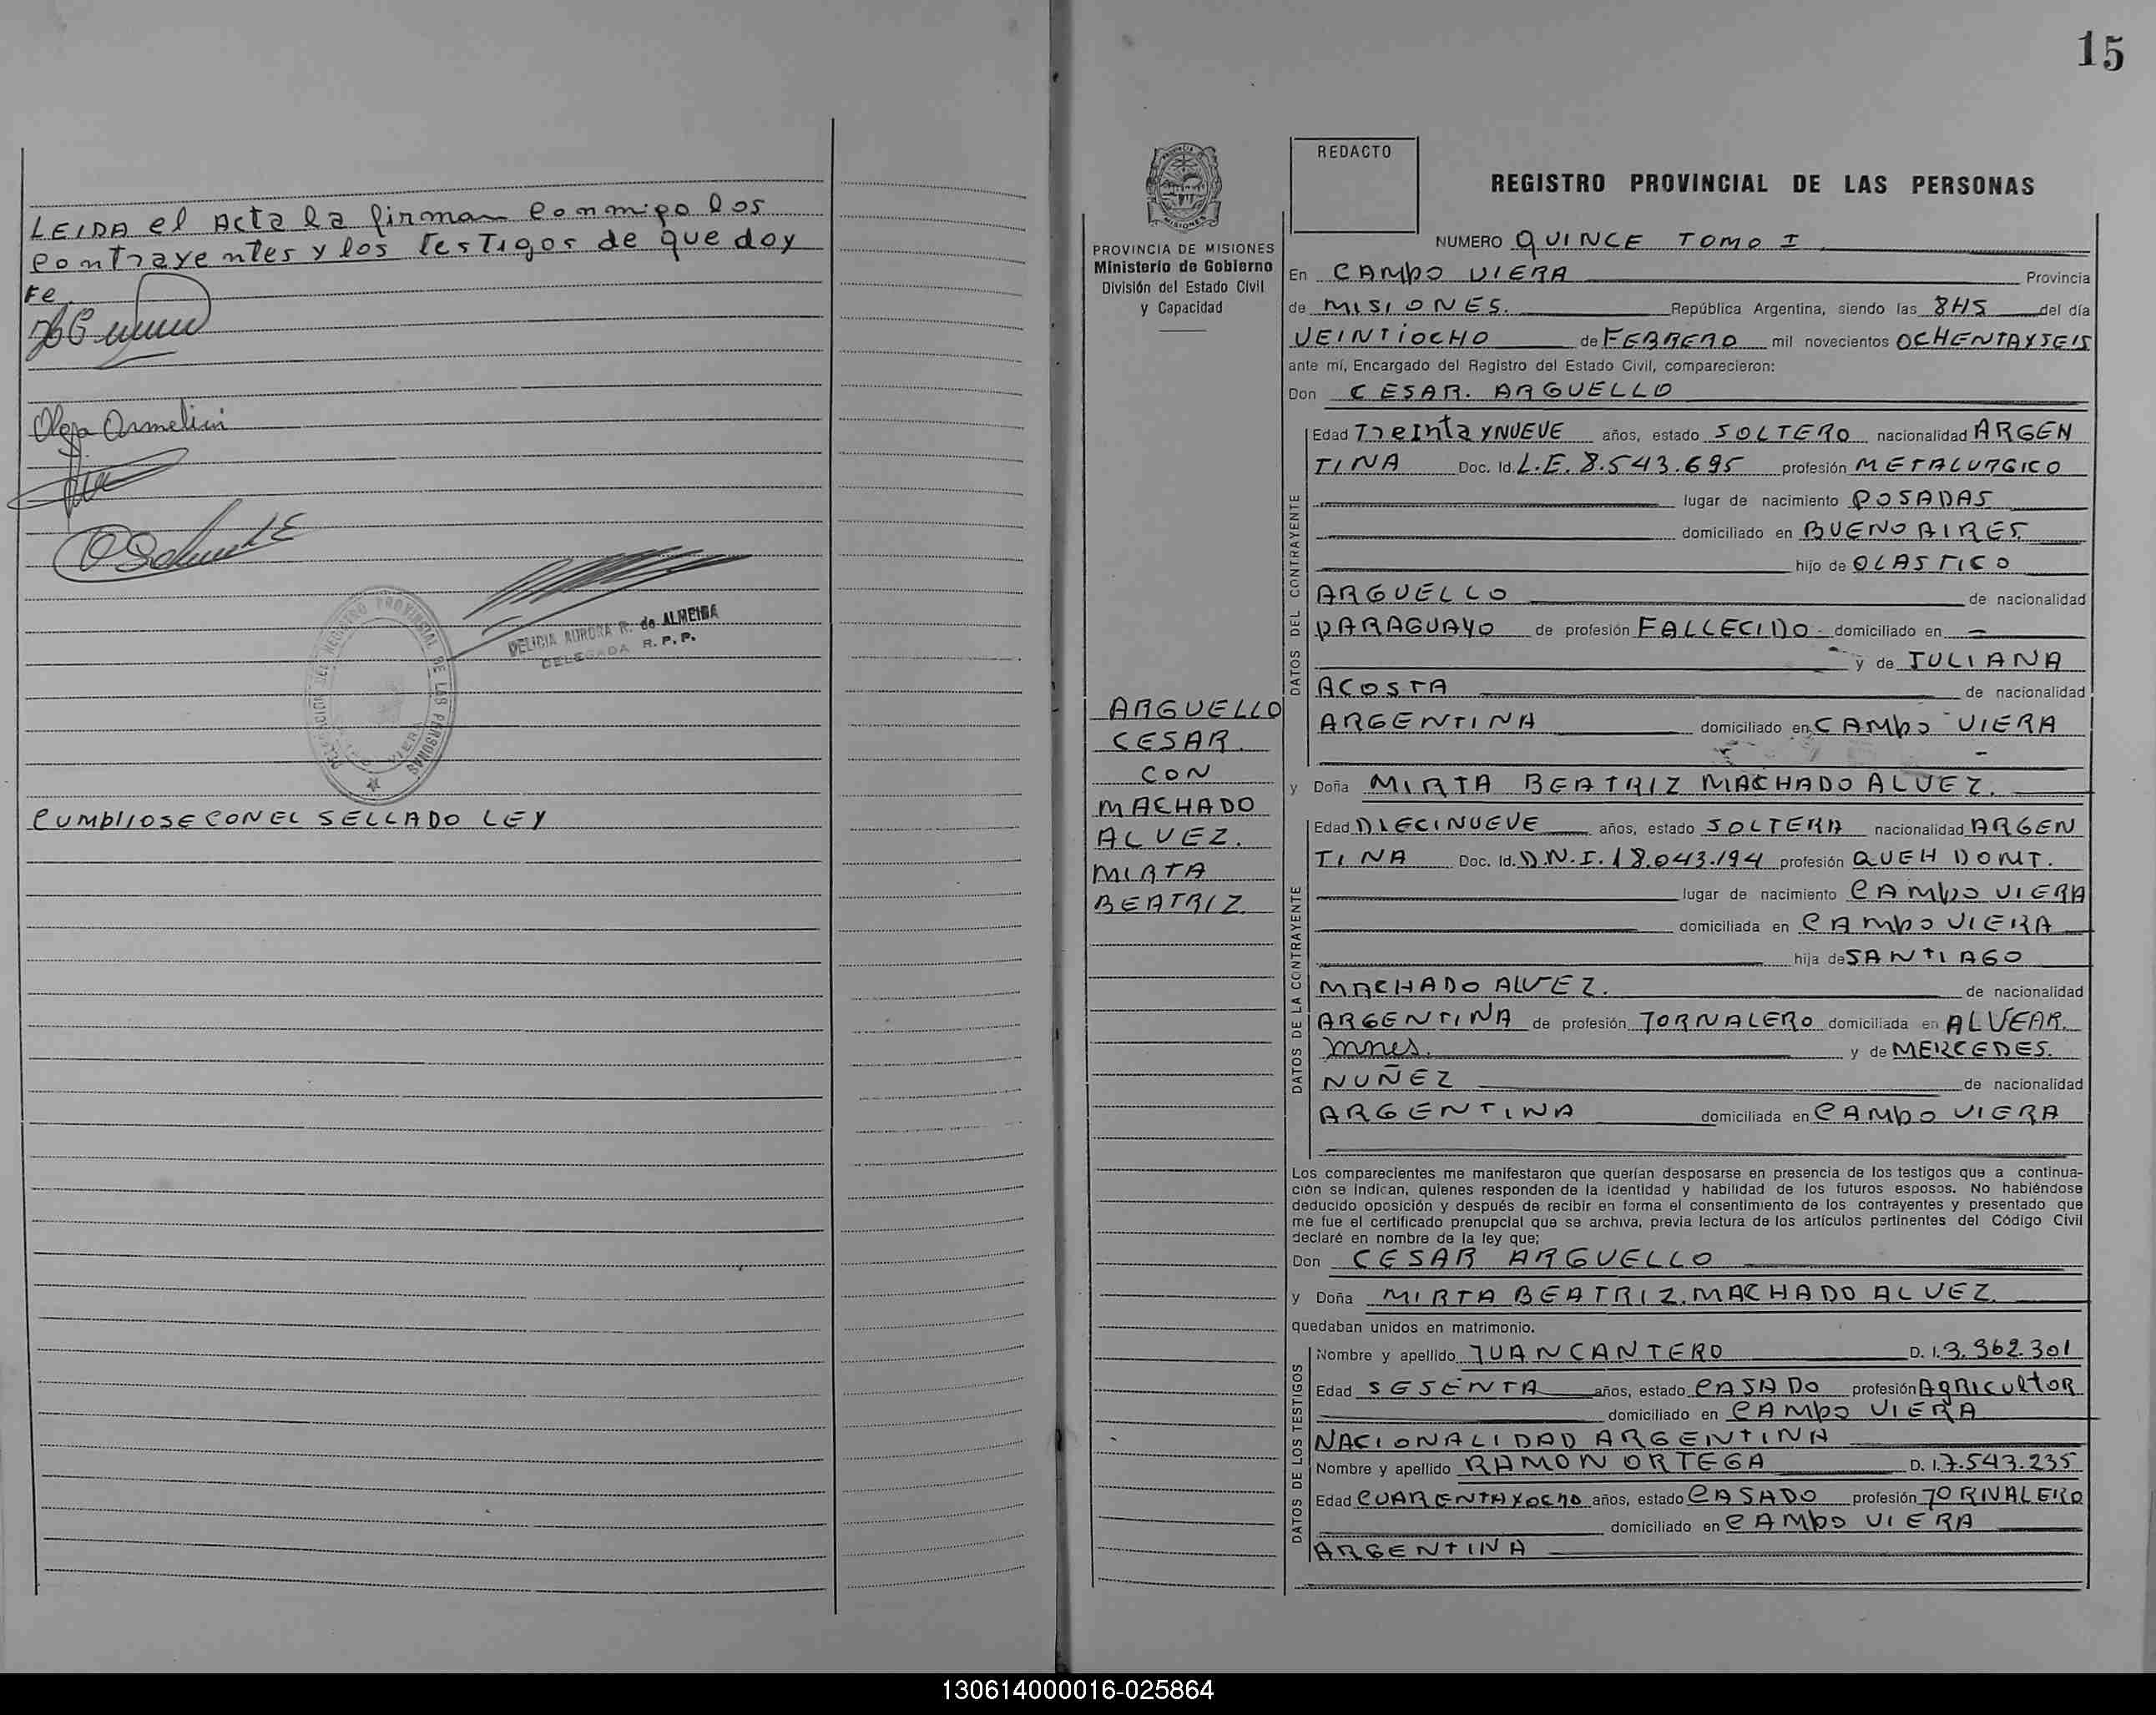 LEIDA el Acta la firman conmigo los
contrayentes y los testigos de que doy
Fe
Olga Armelini
DELICIA AURORA R. de ALMEIDA
DELEGADA R.P.P.
CUMPLIOSE CON EL SELLADO LEY
15
PROVINCIA DE MISIONES
Ministerio de Gobierno
División del Estado Civil
y Capacidad
ARGUELLO
CESAR.
CON
MACHADO
ALVEZ.
MIRTA
BEATRIZ.
REDACTO
REGISTRO PROVINCIAL DE LAS PERSONAS
NUMERO QUINCE TOMO I
En CAMPO VIERA Provincia
de MISIONES. República Argentina, siendo las 8HS del día
VEINTIOCHO de FEBRERO mil novecientos OCHENTAYSEIS
ante mí, Encargado del Registro del Estado Civil, comparecieron:
Don CESAR. ARGUELLO
DATOS DEL CONTRAYENTE
Edad Treinta YNUEVE años, estado SOLTERO nacionalidad ARGEN
TINA Doc. Id. L.E. 8.543.695 profesión METALURGICO
lugar de nacimiento POSADAS
domiciliado en BUENO AIRES.
hijo de OLASTICO
ARGUELLO de nacionalidad
PARAGUAYO de profesión FALLECIDO - domiciliado en —
y de JULIANA
ACOSTA de nacionalidad
ARGENTINA domiciliado en CAMPO VIERA
y Doña MIRTA BEATRIZ MACHADO ALVEZ.
DATOS DE LA CONTRAYENTE
Edad DIECINUEVE años, estado SOLTERA nacionalidad ARGEN
TINA Doc. Id. D.N.I. 18.043.194 profesión QUEH DOMT.
lugar de nacimiento CAMPO VIERA
domiciliada en CAMPO VIERA
hija de SANTIAGO
MACHADO ALVEZ. de nacionalidad
ARGENTINA de profesión JORNALERO domiciliada en ALVEAR.
mnes. y de MERCEDES.
NUÑEZ de nacionalidad
ARGENTINA domiciliada en CAMPO VIERA
Los comparecientes me manifestaron que querían desposarse en presencia de los testigos que a continua-
ción se indican, quienes responden de la identidad y habilidad de los futuros esposos. No habiéndose
deducido oposición y después de recibir en forma el consentimiento de los contrayentes y presentado que
me fue el certificado prenupcial que se archiva, previa lectura de los artículos pertinentes del Código Civil
declaré en nombre de la ley que;
Don CESAR ARGUELLO
y Doña MIRTA BEATRIZ. MACHADO ALVEZ.
quedaban unidos en matrimonio.
DATOS DE LOS TESTIGOS
Nombre y apellido JUAN CANTERO D. I. 3.362.301
Edad SESENTA años, estado CASADO profesión AgRIcultOR
domiciliado en CAMPO VIERA
NACIONALIDAD ARGENTINA
Nombre y apellido RAMON ORTEGA D. I. 7.543.235
Edad CUARENTAYOCHO años, estado CASADO profesión JORNALERO
domiciliado en CAMPO VIERA
ARGENTINA
130614000016-025864